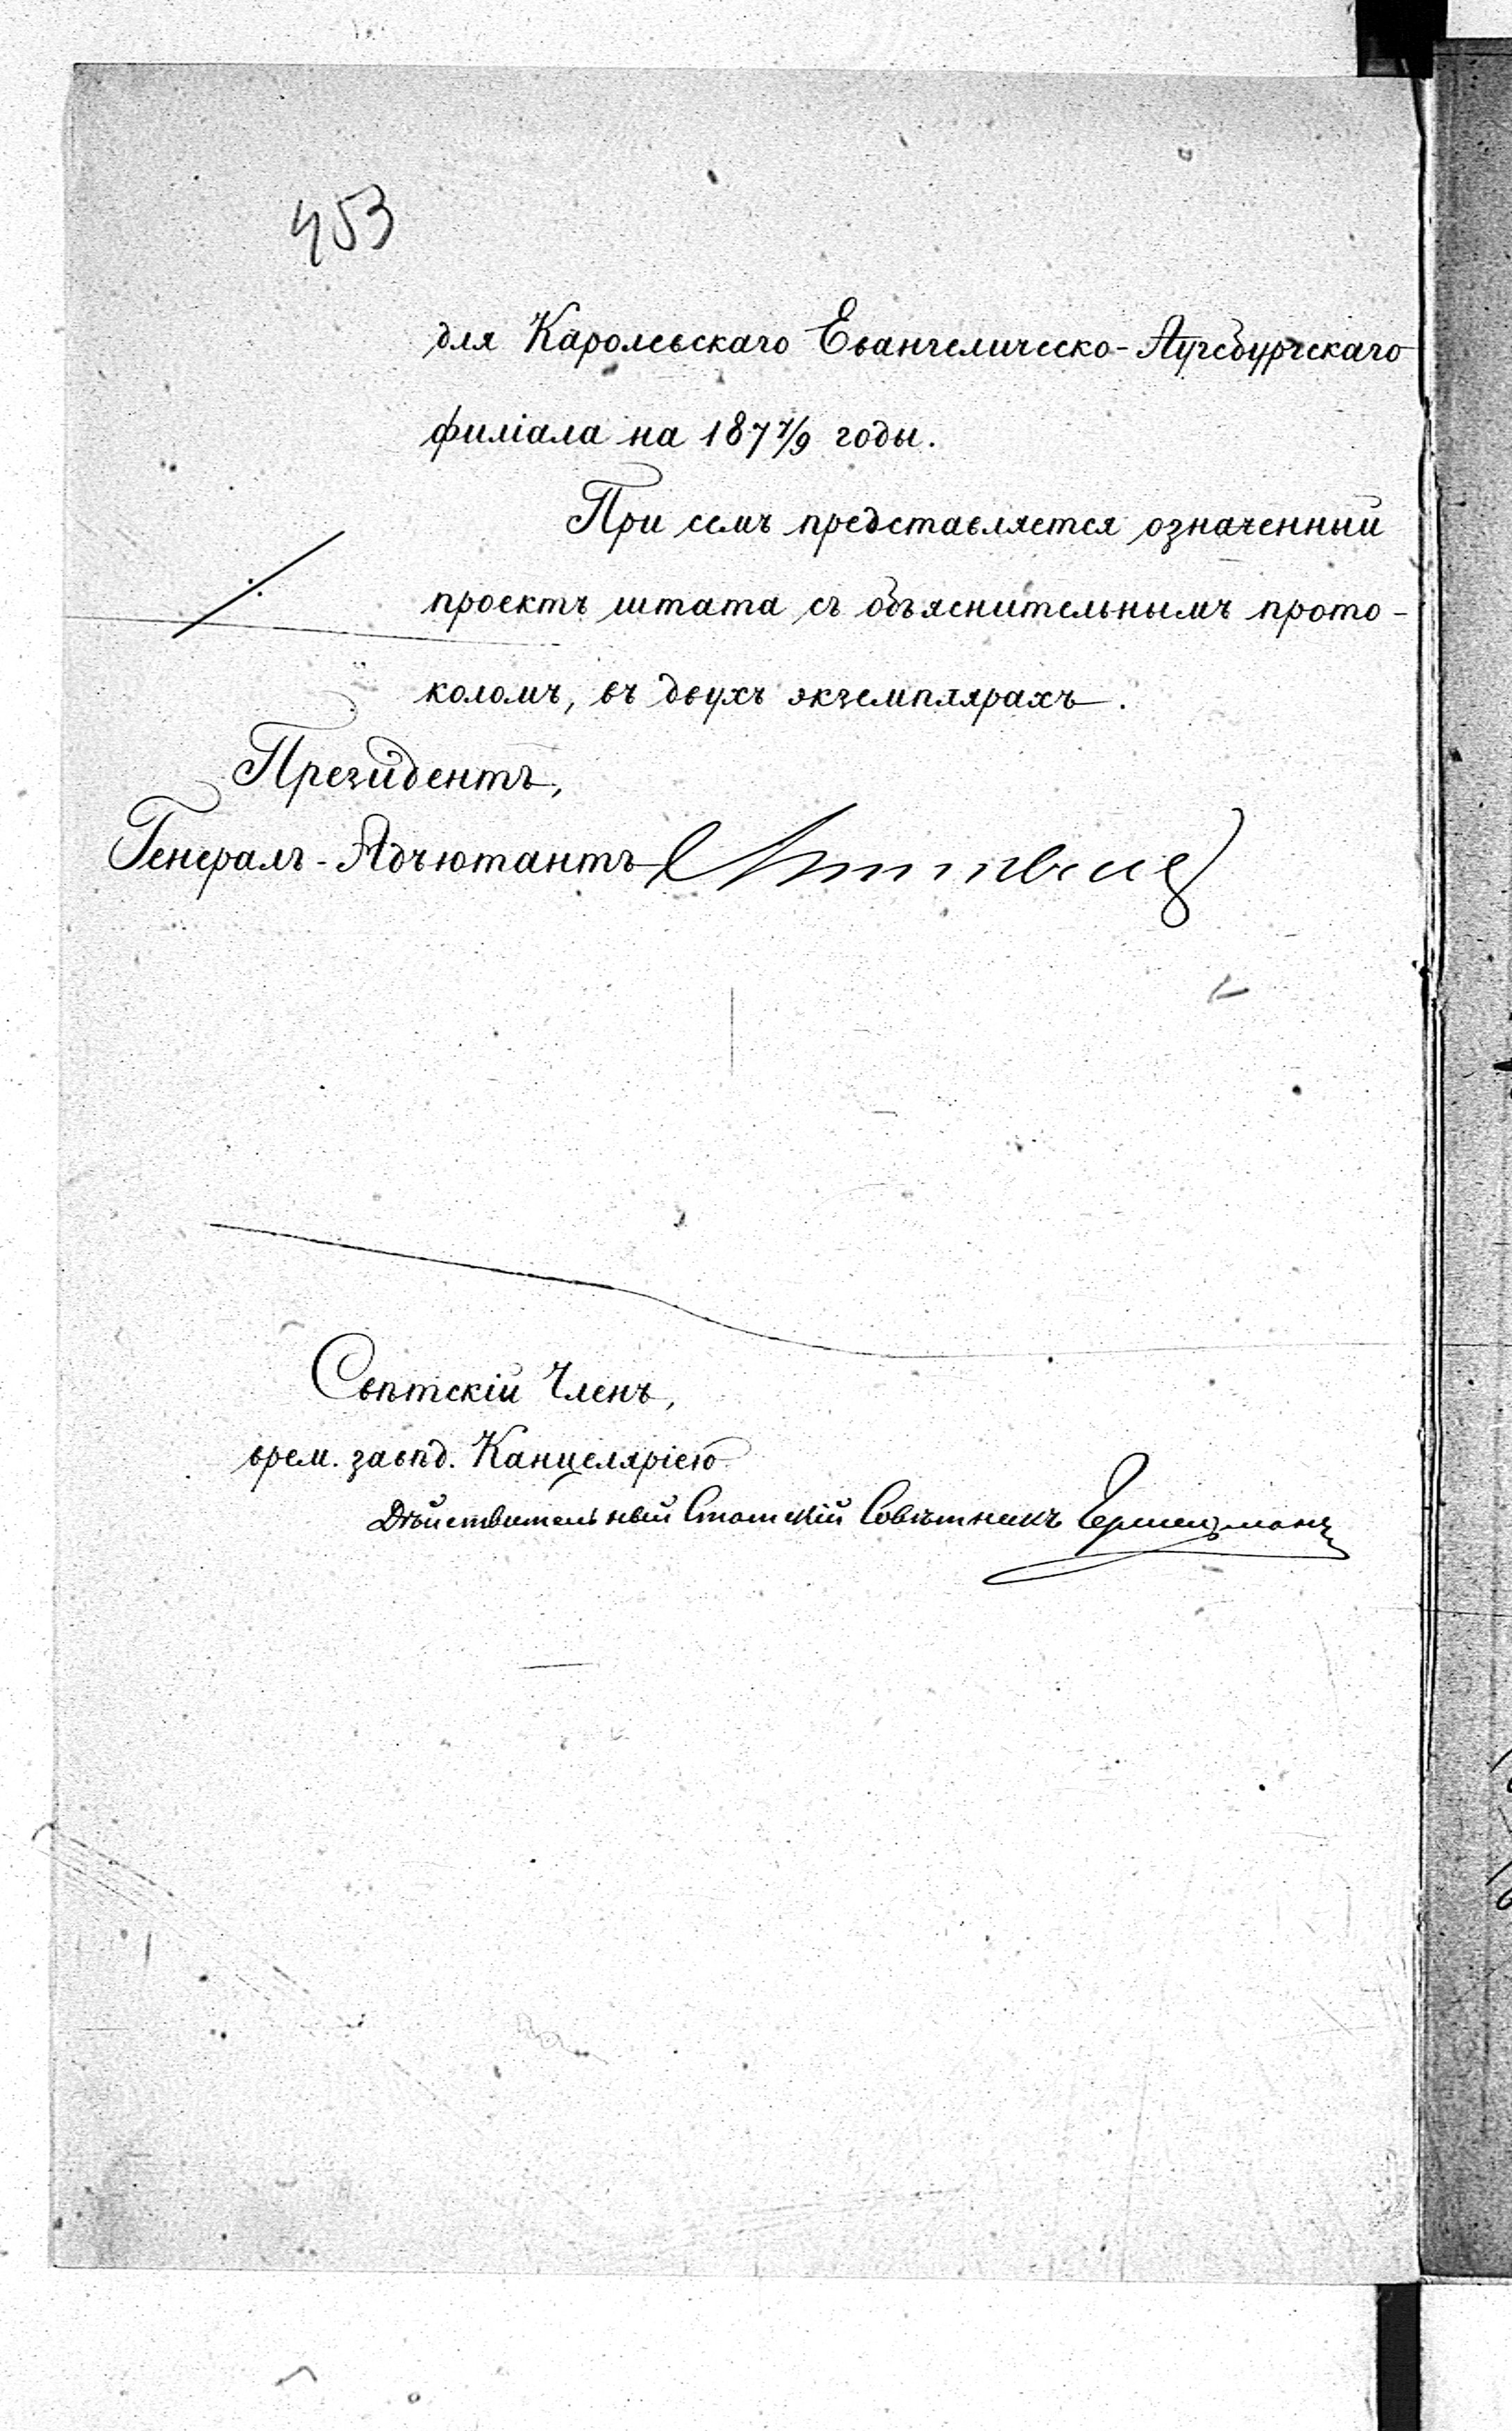 453
для Каролевскаго Евангелическо-Аугсбургскаго
филіала на 187 7/9 годы.
При семъ представляется означенный
проектъ штата съ объяснительнымъ прото-
коломъ, въ двухъ экземплярахъ.
Президентъ,
Генералъ-Адъютантъ
Свѣтскій Членъ,
врем. завѣд. Канцеляріею
Дѣйствительный Статскій Совѣтникъ